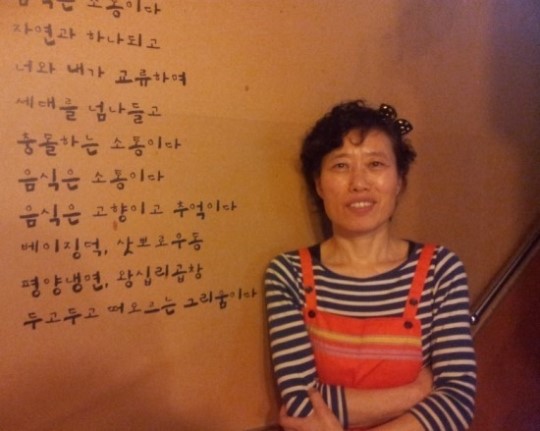 음식은 소통이다
자연과 하나되고
너와 내가 교류하며
세대를 넘나들고
충돌하는 소통이다
음식은 소통이다
음식은 고향이고 추억이다
베이징덕, 삿뽀로우동
평양냉면, 왕십리곱창
두고두고 떠오르는 그리움이다